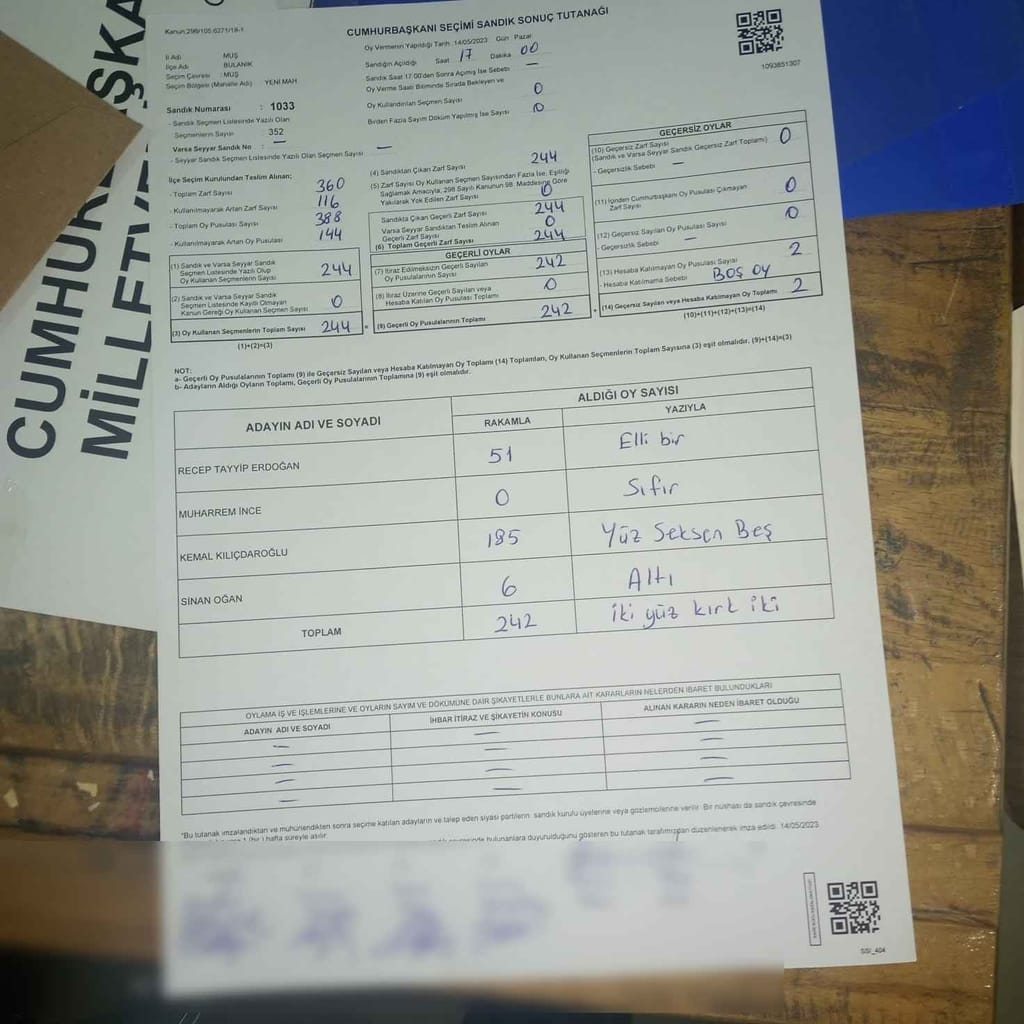 CUMHURBAŞKANI SEÇİMİ SANDIK SONUÇ TUTANAĞI
Kanun:298/105.6271/18-1
Oy Vermenin Yapıldığı Tarih :14/05/2023 Gün : Pazar
İl Adı : MUŞ
İlçe Adı : BULANIK
Seçim Çevresi : MUŞ
Seçim Bölgesi (Mahalle Adı) YENİ MAH
Sandığın Açıldığı Saat 17 Dakika 00
Sandık Saat 17.00'den Sonra Açılmış İse Sebebi —
Oy Verme Saati Bitiminde Sırada Bekleyen ve
Oy Kullandırılan Seçmen Sayısı 0
Birden Fazla Sayım Döküm Yapılmış İse Sayısı 0
1093851307
Sandık Numarası : 1033
- Sandık Seçmen Listesinde Yazılı Olan
Seçmenlerin Sayısı 352
Varsa Seyyar Sandık No : —
- Seyyar Sandık Seçmen Listesinde Yazılı Olan Seçmen Sayısı —
İlçe Seçim Kurulundan Teslim Alınan;
- Toplam Zarf Sayısı 360
- Kullanılmayarak Artan Zarf Sayısı 116
- Toplam Oy Pusulası Sayısı 388
- Kullanılmayarak Artan Oy Pusulası 144
(1) Sandık ve Varsa Seyyar Sandık
Seçmen Listesinde Yazılı Olup
Oy Kullanan Seçmenlerin Sayısı 244
(2) Sandık ve Varsa Seyyar Sandık
Seçmen Listesinde Kayıtlı Olmayan
Kanun Gereği Oy Kullanan Seçmen Sayısı 0
(3) Oy Kullanan Seçmenlerin Toplam Sayısı 244
(1)+(2)=(3)
(4) Sandıktan Çıkan Zarf Sayısı 244
(5) Zarf Sayısı Oy Kullanan Seçmen Sayısından Fazla İse, Eşitliği
Sağlamak Amacıyla, 298 Sayılı Kanunun 98. Maddesine Göre
Yakılarak Yok Edilen Zarf Sayısı 0
Sandıkta Çıkan Geçerli Zarf Sayısı 244
Varsa Seyyar Sandıktan Teslim Alınan
Geçerli Zarf Sayısı 0
(6) Toplam Geçerli Zarf Sayısı 244
GEÇERLİ OYLAR
(7) İtiraz Edilmeksizin Geçerli Sayılan
Oy Pusulalarının Sayısı 242
(8) İtiraz Üzerine Geçerli Sayılan veya
Hesaba Katılan Oy Pusulası Toplamı 0
= (9) Geçerli Oy Pusulalarının Toplamı 242
GEÇERSİZ OYLAR
(10) Geçersiz Zarf Sayısı 0
(Sandık ve Varsa Seyyar Sandık Geçersiz Zarf Toplamı)
- Geçersizlik Sebebi —
(11) İçinden Cumhurbaşkanı Oy Pusulası Çıkmayan
Zarf Sayısı 0
(12) Geçersiz Sayılan Oy Pusulası Sayısı 0
- Geçersizlik Sebebi —
(13) Hesaba Katılmayan Oy Pusulası Sayısı 2
- Hesaba Katılmama Sebebi : BOŞ OY
+ (14) Geçersiz Sayılan veya Hesaba Katılmayan Oy Toplamı 2
(10)+(11)+(12)+(13)=(14)
NOT:
a- Geçerli Oy Pusulalarının Toplamı (9) ile Geçersiz Sayılan veya Hesaba Katılmayan Oy Toplamı (14) Toplamları, Oy Kullanan Seçmenlerin Toplam Sayısına (3) eşit olmalıdır. (9)+(14)=(3)
b- Adayların Aldığı Oyların Toplamı, Geçerli Oy Pusulalarının Toplamına (9) eşit olmalıdır.
ADAYIN ADI VE SOYADI ALDIĞI OY SAYISI
RAKAMLA YAZIYLA
RECEP TAYYİP ERDOĞAN 51 Elli bir
MUHARREM İNCE 0 Sıfır
KEMAL KILIÇDAROĞLU 185 Yüz Seksen Beş
SİNAN OĞAN 6 Altı
TOPLAM 242 iki yüz kırk iki
OYLAMA İŞ VE İŞLEMLERİNE VE OYLARIN SAYIM VE DÖKÜMÜNE DAİR ŞİKAYETLERLE BUNLARA AİT KARARLARIN NELERDEN İBARET BULUNDUKLARI
ADAYIN ADI VE SOYADI İHBAR İTİRAZ VE ŞİKAYETİN KONUSU ALINAN KARARIN NEDEN İBARET OLDUĞU
— — —
— — —
— — —
— — —
*Bu tutanak imzalandıktan ve mühürlendikten sonra seçime katılan adayların ve talep eden siyasi partilerin sandık kurulu üyelerine veya gözlemcilerine verilir. Bir nüshası da sandık çevresinde
1 (bir) hafta süreyle asılır.
bulunanlara duyurulduğunu gösteren bu tutanak tarafımızdan düzenlenerek imza edildi. 14/05/2023
SSI_404
CUMHURBAŞKA
MİLLETVE